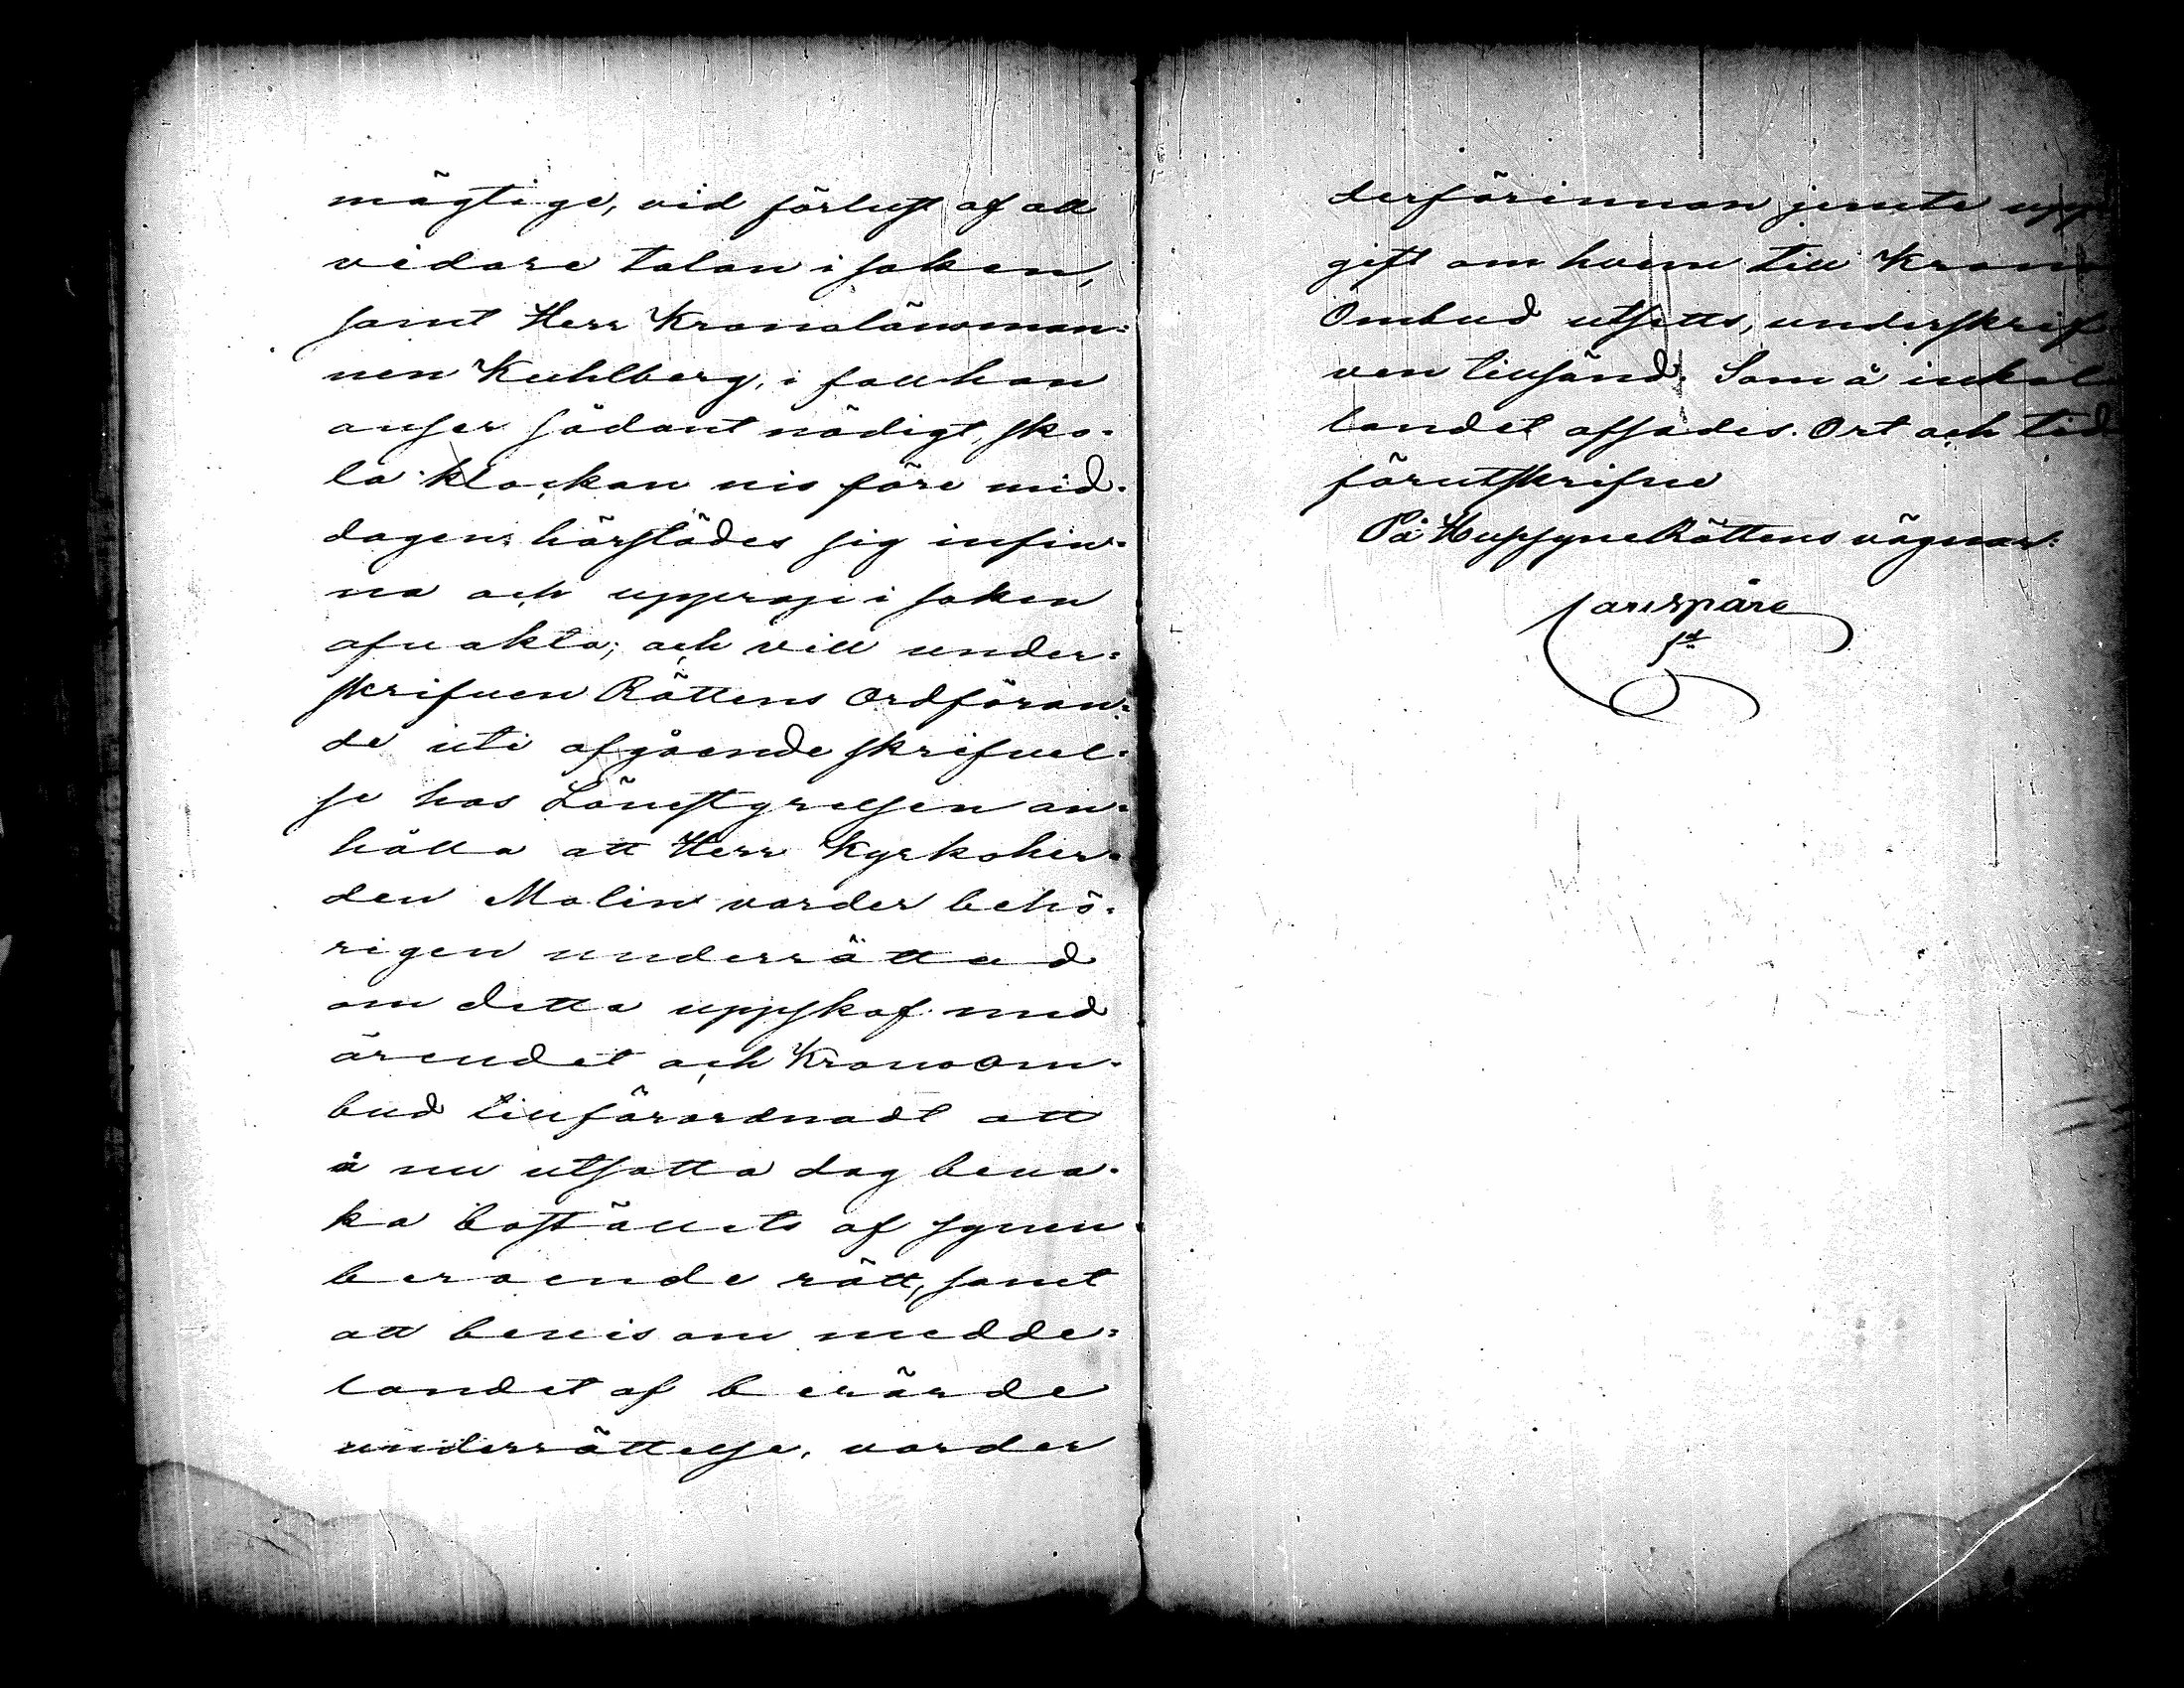 mägtige, vid förlust af all
vidare talan i saken,
samt Herr Kronolänsman=
nen Kuhlberg, i fall han
anser sådant nödigt, sko-
la klockan nio före mid-
dagen härstädes sig infin-
na och upprop i saken
afvakta; och vill under=
skrifven Rättens Ordföran=
de uti afgående skrifvel=
se hos Länestyrelsen an=
hålla att Herr Kyrkoher=
den Malin varder behö-
rigen underrättad
om detta uppskof med
ärendet och Kronoom-
bud tillförordnadt att
å nu utsatta dag beva-
ka boställets af synen
beroende rätt, samt
att bevis om medde=
landet af berörde
underrättelse, varder
derförinnan jemte upp
gift om hvem till Krono
Ombud utsetts, underskrif
ven tillsänd. Som å inkal
landet afsades. Ort och tid
förutskrifne
På HussyneRättens vägnar: